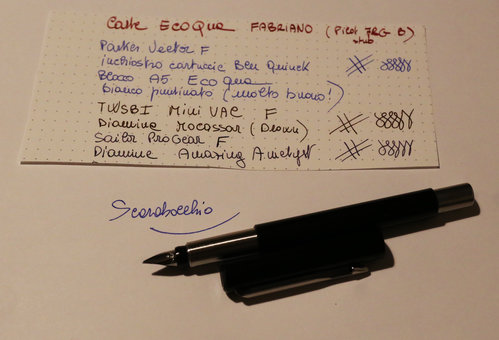 Carte EcoQua FABRIANO (Pilot 78G B)
stub
Parker Vector F
inchiostro cartuccie Blu Quink
Blocco A5 EcoQua
bianco puntinato (molto buono!)
TWSBI Mini VAC F
Diamine Macassar (Brown)
Sailor ProGear F
Diamine Amazing Amethyst
Scarabocchio